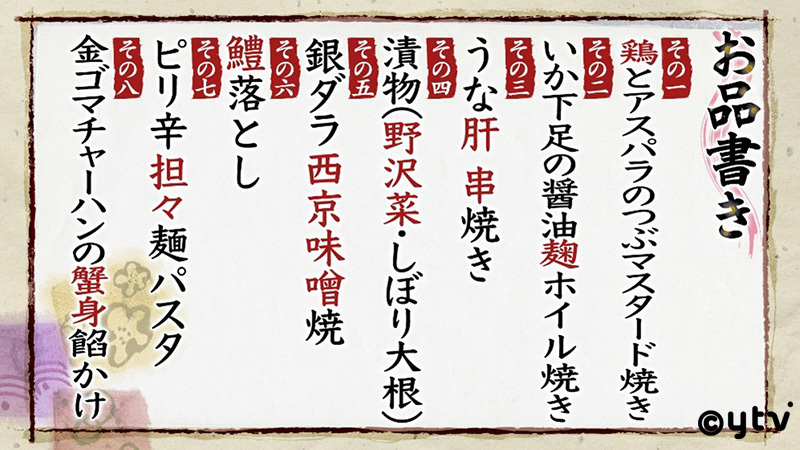 お品書き
その一
鶏とアスパラのつぶマスタード焼き
その二
いか下足の醤油麹ホイル焼き
その三
うな肝串焼き
その四
漬物(野沢菜・しぼり大根)
その五
銀ダラ西京味噌焼
その六
鱧落とし
その七
ピリ辛担々麺パスタ
その八
金ゴマチャーハンの蟹身餡かけ
©ytv